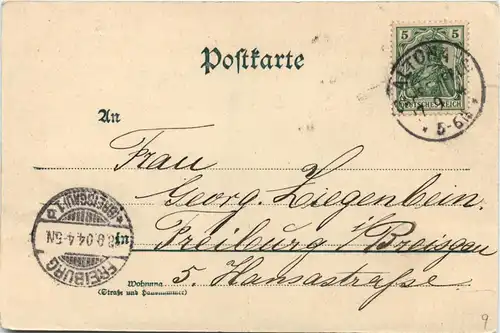 Postkarte
5 5
DEUTSCHES REICH
ALTONA
* 5-6N *
An
Frau
Georg. Ziegenbein.
in Freiburg i/Breisgau
5. Hansastraße.
FREIBURG
(BREISGAU) 1
8.9.04.4-5N
Wohnung
(Straße und Hausnummer)
9